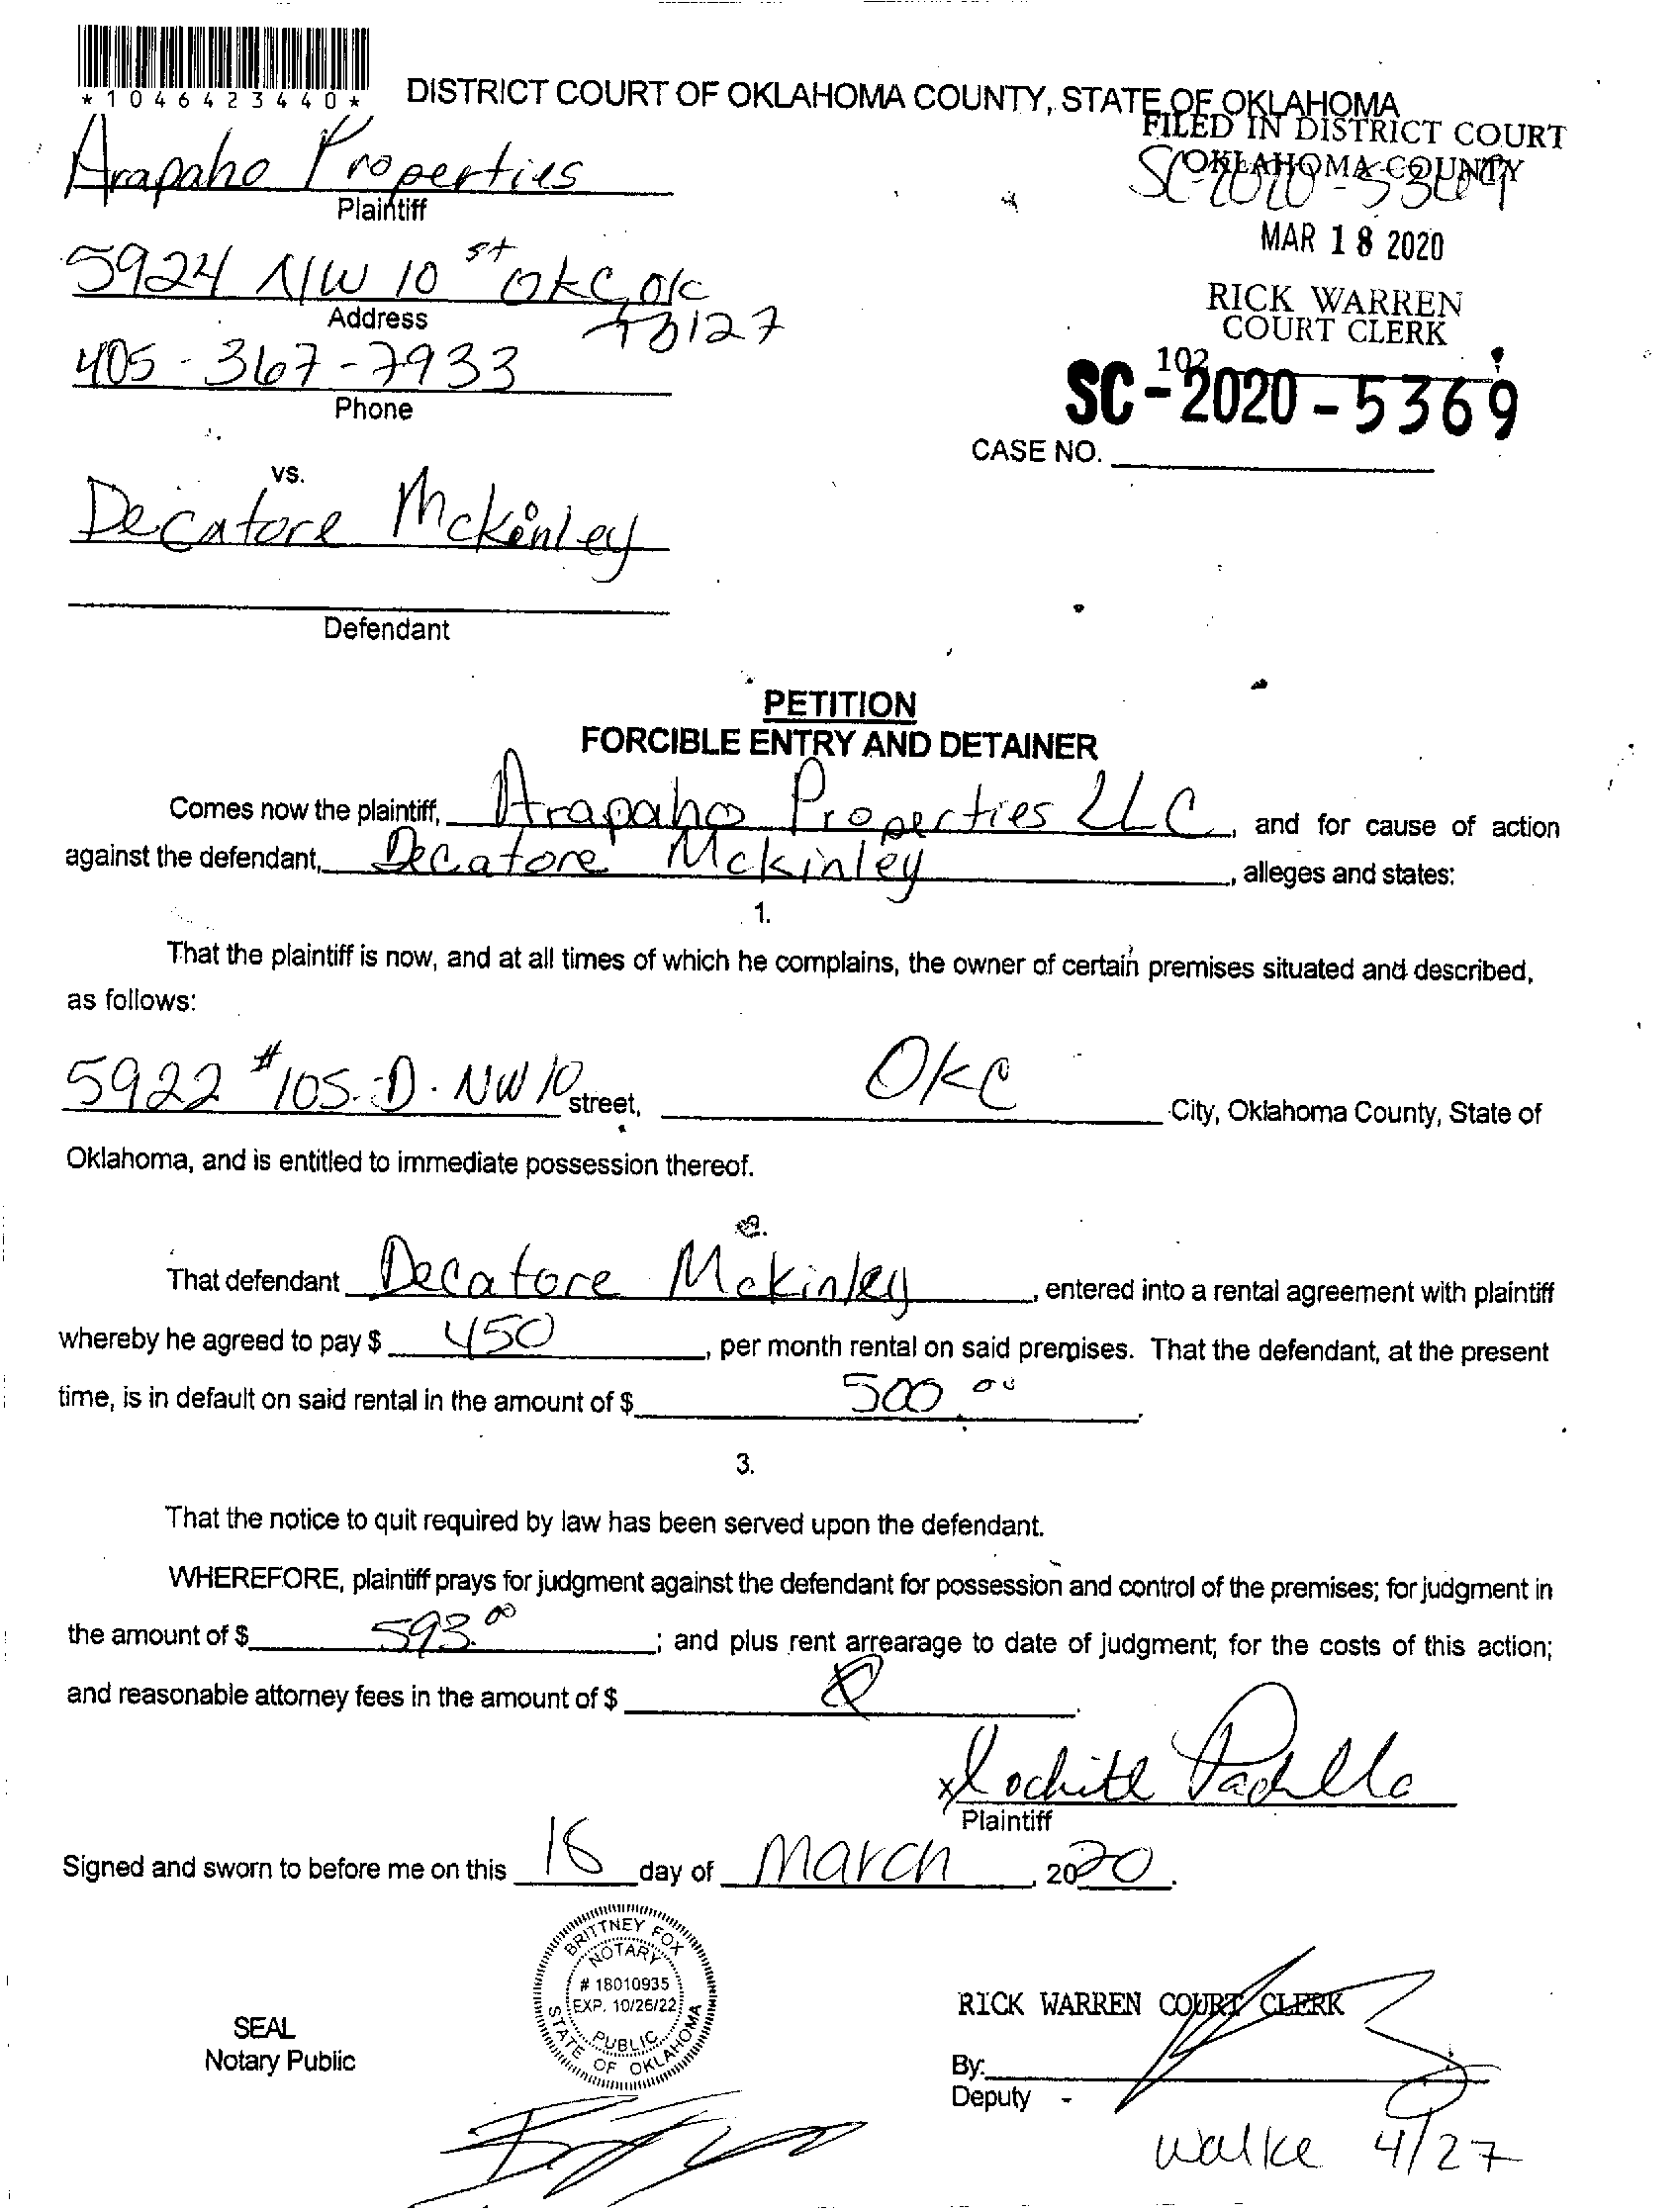 *1046423440*
DISTRICT COURT OF OKLAHOMA COUNTY, STATE OF OKLAHOMA
FILED IN DISTRICT COURT
OKLAHOMA COUNTY
Arapaho Properties
SC-2020-5369
Plaintiff
MAR 18 2020
5924 NW 10 st OKC, OK
73127
Address
RICK WARREN
COURT CLERK
405-367-7933
102
Phone
SC-2020-5369
CASE NO.
vs.
Decatore Mckinley
Defendant
PETITION
FORCIBLE ENTRY AND DETAINER
Comes now the plaintiff, Arapaho Properties LLC, and for cause of action
against the defendant, Decatore Mckinley, alleges and states:
1.
That the plaintiff is now, and at all times of which he complains, the owner of certain premises situated and described,
as follows:
5922 #105-D. NW 10 street, OKC City, Oklahoma County, State of
Oklahoma, and is entitled to immediate possession thereof.
That defendant Decatore Mckinley, entered into a rental agreement with plaintiff
whereby he agreed to pay $ 450, per month rental on said premises. That the defendant, at the present
time, is in default on said rental in the amount of $ 500.00.
3.
That the notice to quit required by law has been served upon the defendant.
WHEREFORE, plaintiff prays for judgment against the defendant for possession and control of the premises; for judgment in
the amount of $ 593.00; and plus rent arrearage to date of judgment; for the costs of this action;
and reasonable attorney fees in the amount of $
Xochitl Padilla
Plaintiff
Signed and sworn to before me on this 18 day of March, 2020.
BRITTNEY FOX
NOTARY
# 18010935
EXP. 10/26/22
PUBLIC
STATE OF OKLAHOMA
SEAL
Notary Public
RICK WARREN COURT CLERK
By:
Deputy
Walke 4/27